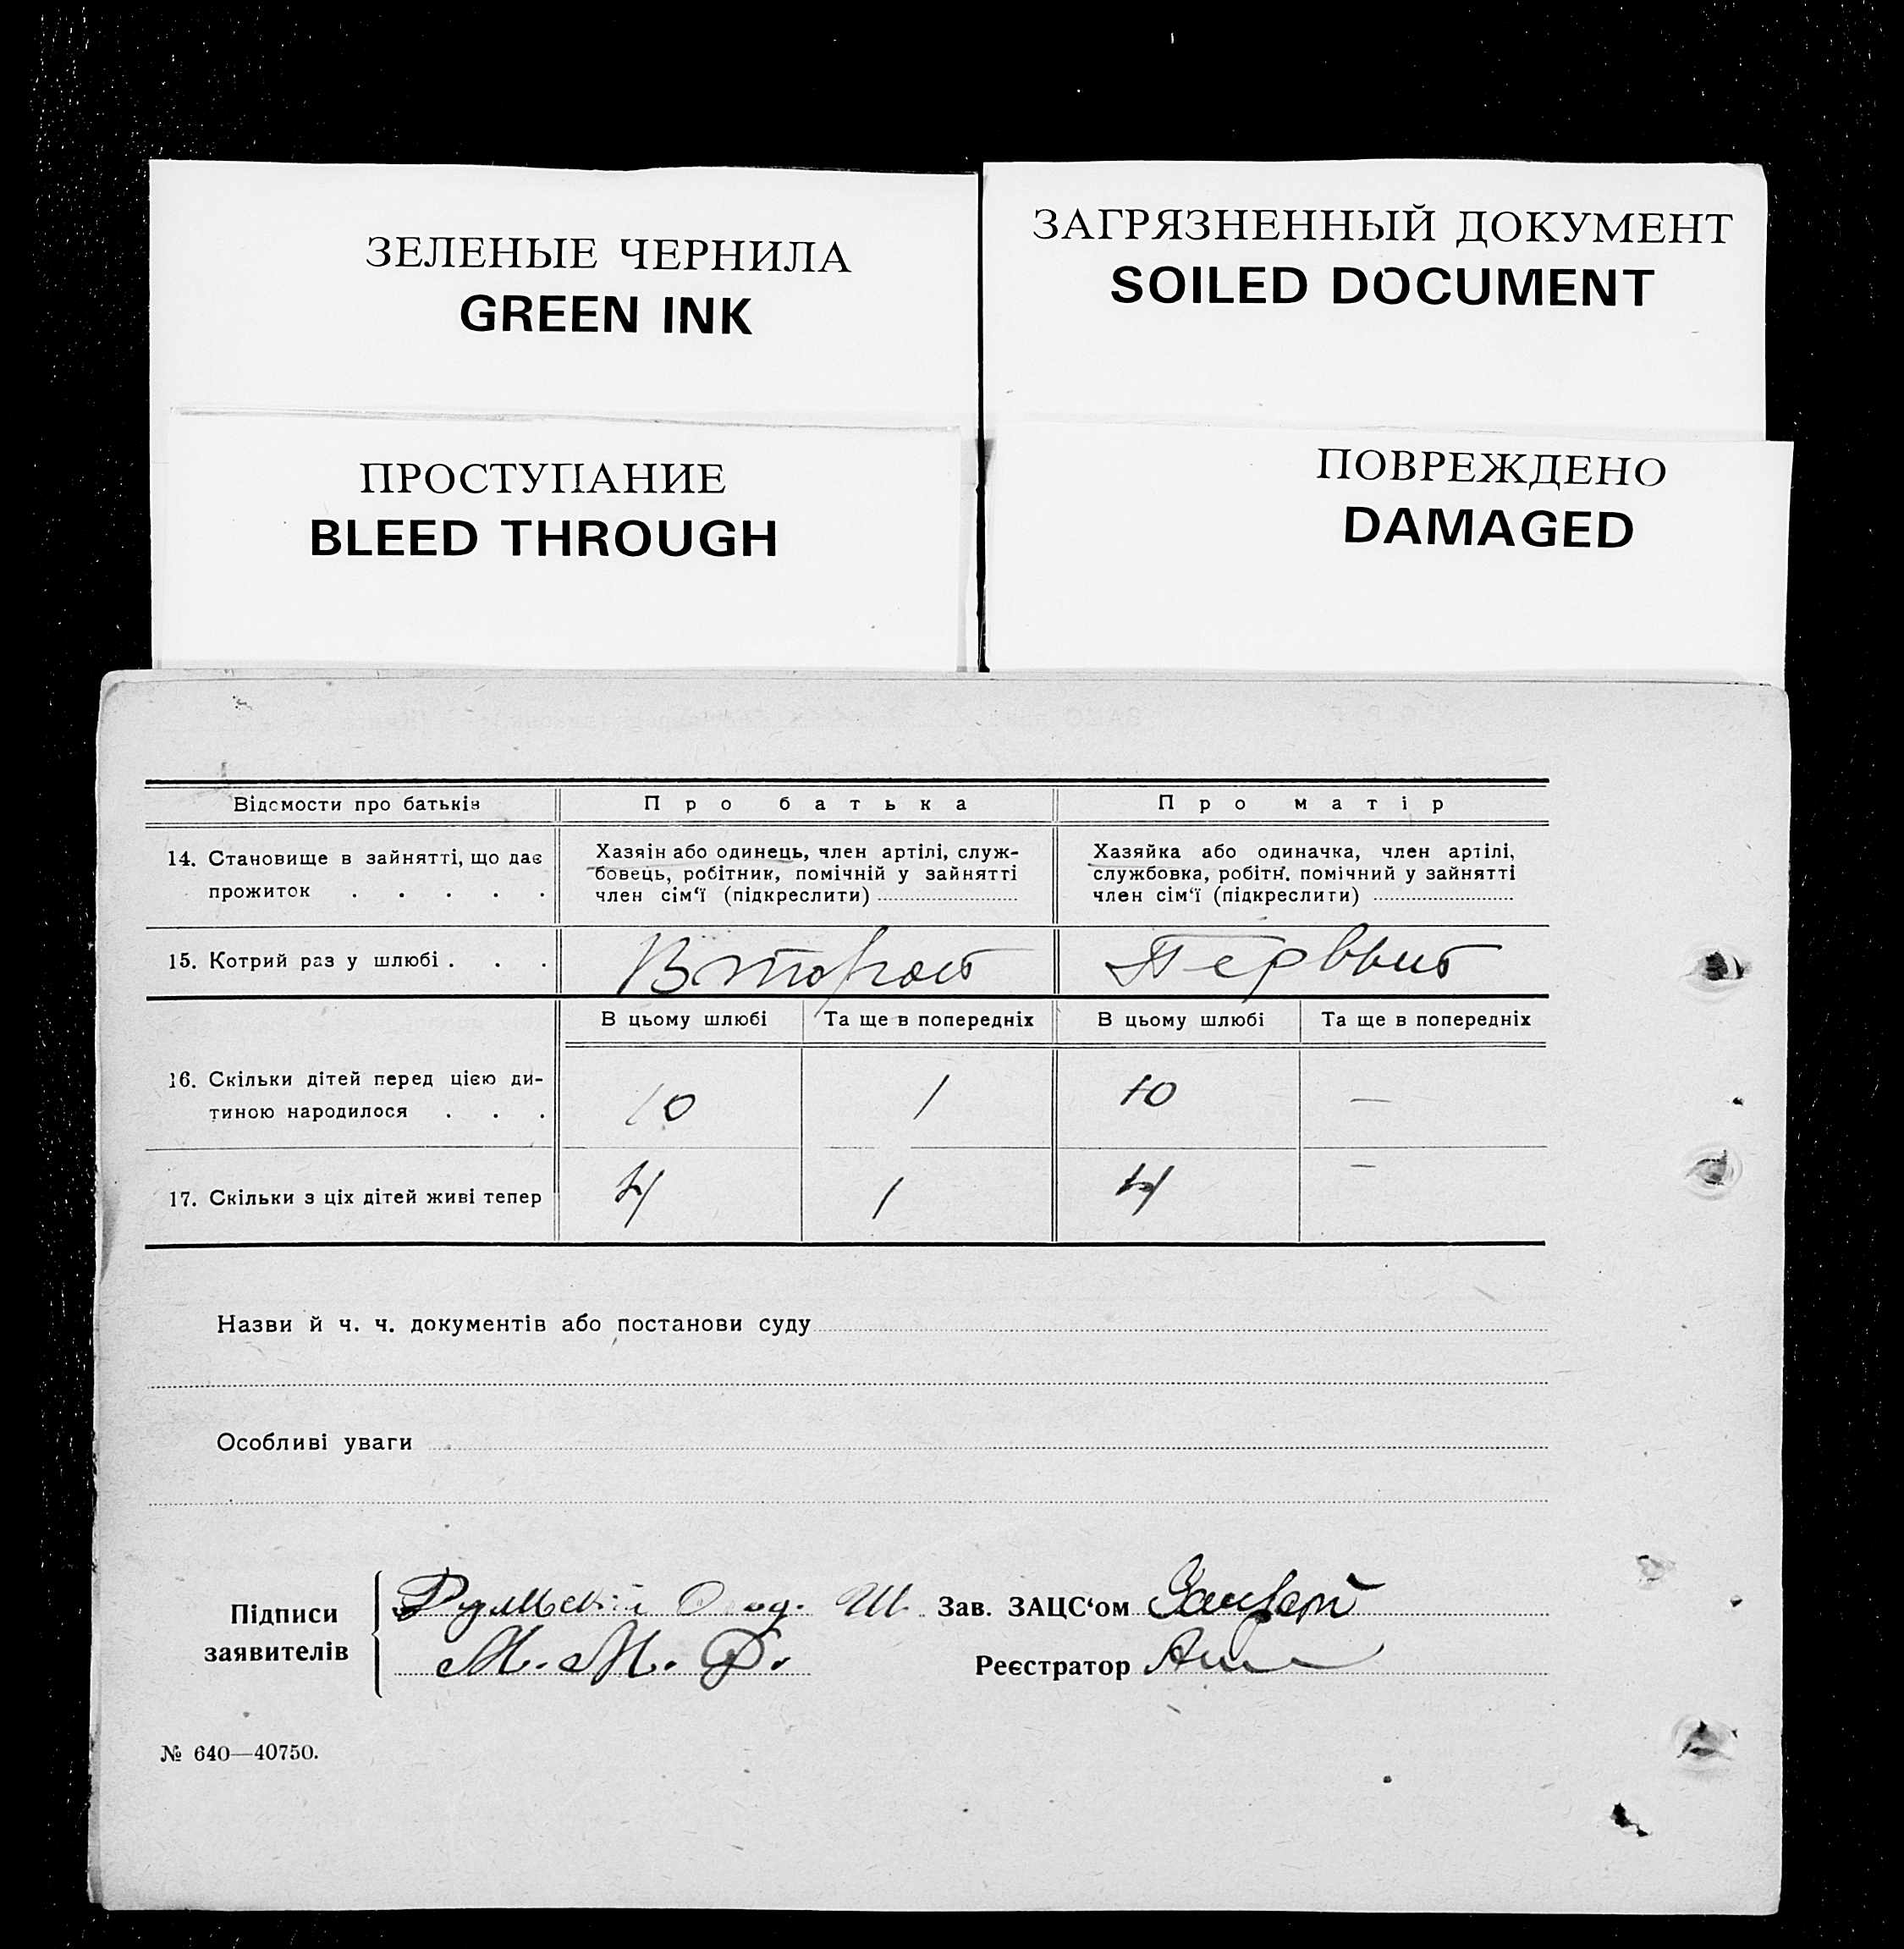 ЗЕЛЕНЫЕ ЧЕРНИЛА
GREEN INK
ЗАГРЯЗНЕННЫЙ ДОКУМЕНТ
SOILED DOCUMENT
ПРОСТУПАНИЕ
BLEED THROUGH
ПОВРЕЖДЕНО
DAMAGED
Відомости про батьків Про батька Про матір
14. Становище в зайнятті, що дає
прожиток . . . . .
Хазяін або одинець, член артілі, служ-
бовець, робітник, помічній у зайнятті
член сім‘ї (підкреслити)
Хазяйка або одиначка, член артілі,
службовка, робітн. помічний у зайнятті
член сім‘ї (підкреслити)
15. Котрий раз у шлюбі . . . Второй Первый
В цьому шлюбі Та ще в попередніх В цьому шлюбі Та ще в попередніх
16. Скільки дітей перед цією ди-
тиною народилося . . . 10 1 10 —
17. Скільки з ціх дітей живі тепер 4 1 4 —
Назви й ч. ч. документів або постанови суду
Особливі уваги
Підписи
заявителів
М. М. Р.
Зав. ЗАЦС‘ом
Реєстратор
№ 640—40750.